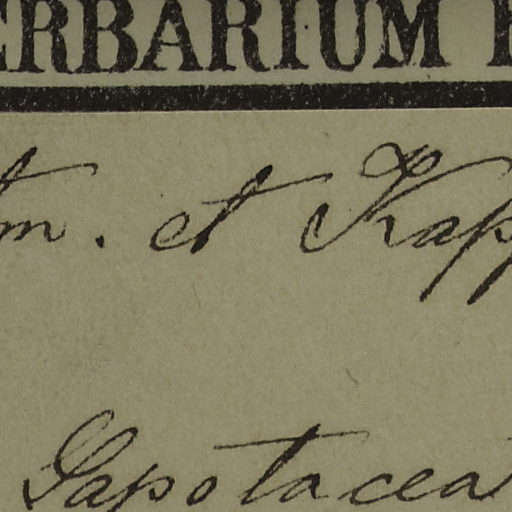 ERBARIUM
m. et Kapp
Sapotacea